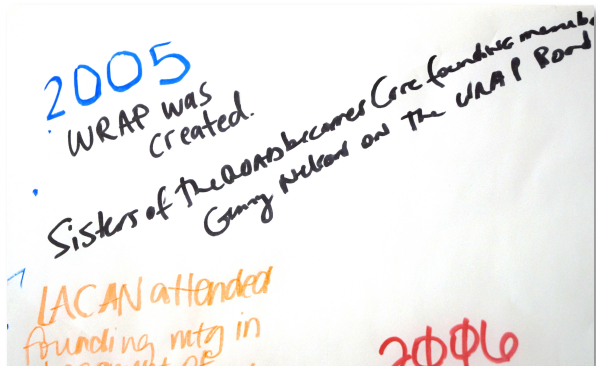 2005
WRAP was
created.
Sisters of the ROADS becomes Core founding memb
Nelson on the WRAP Board
LACAN attended
founding mtg in
basement of
2006